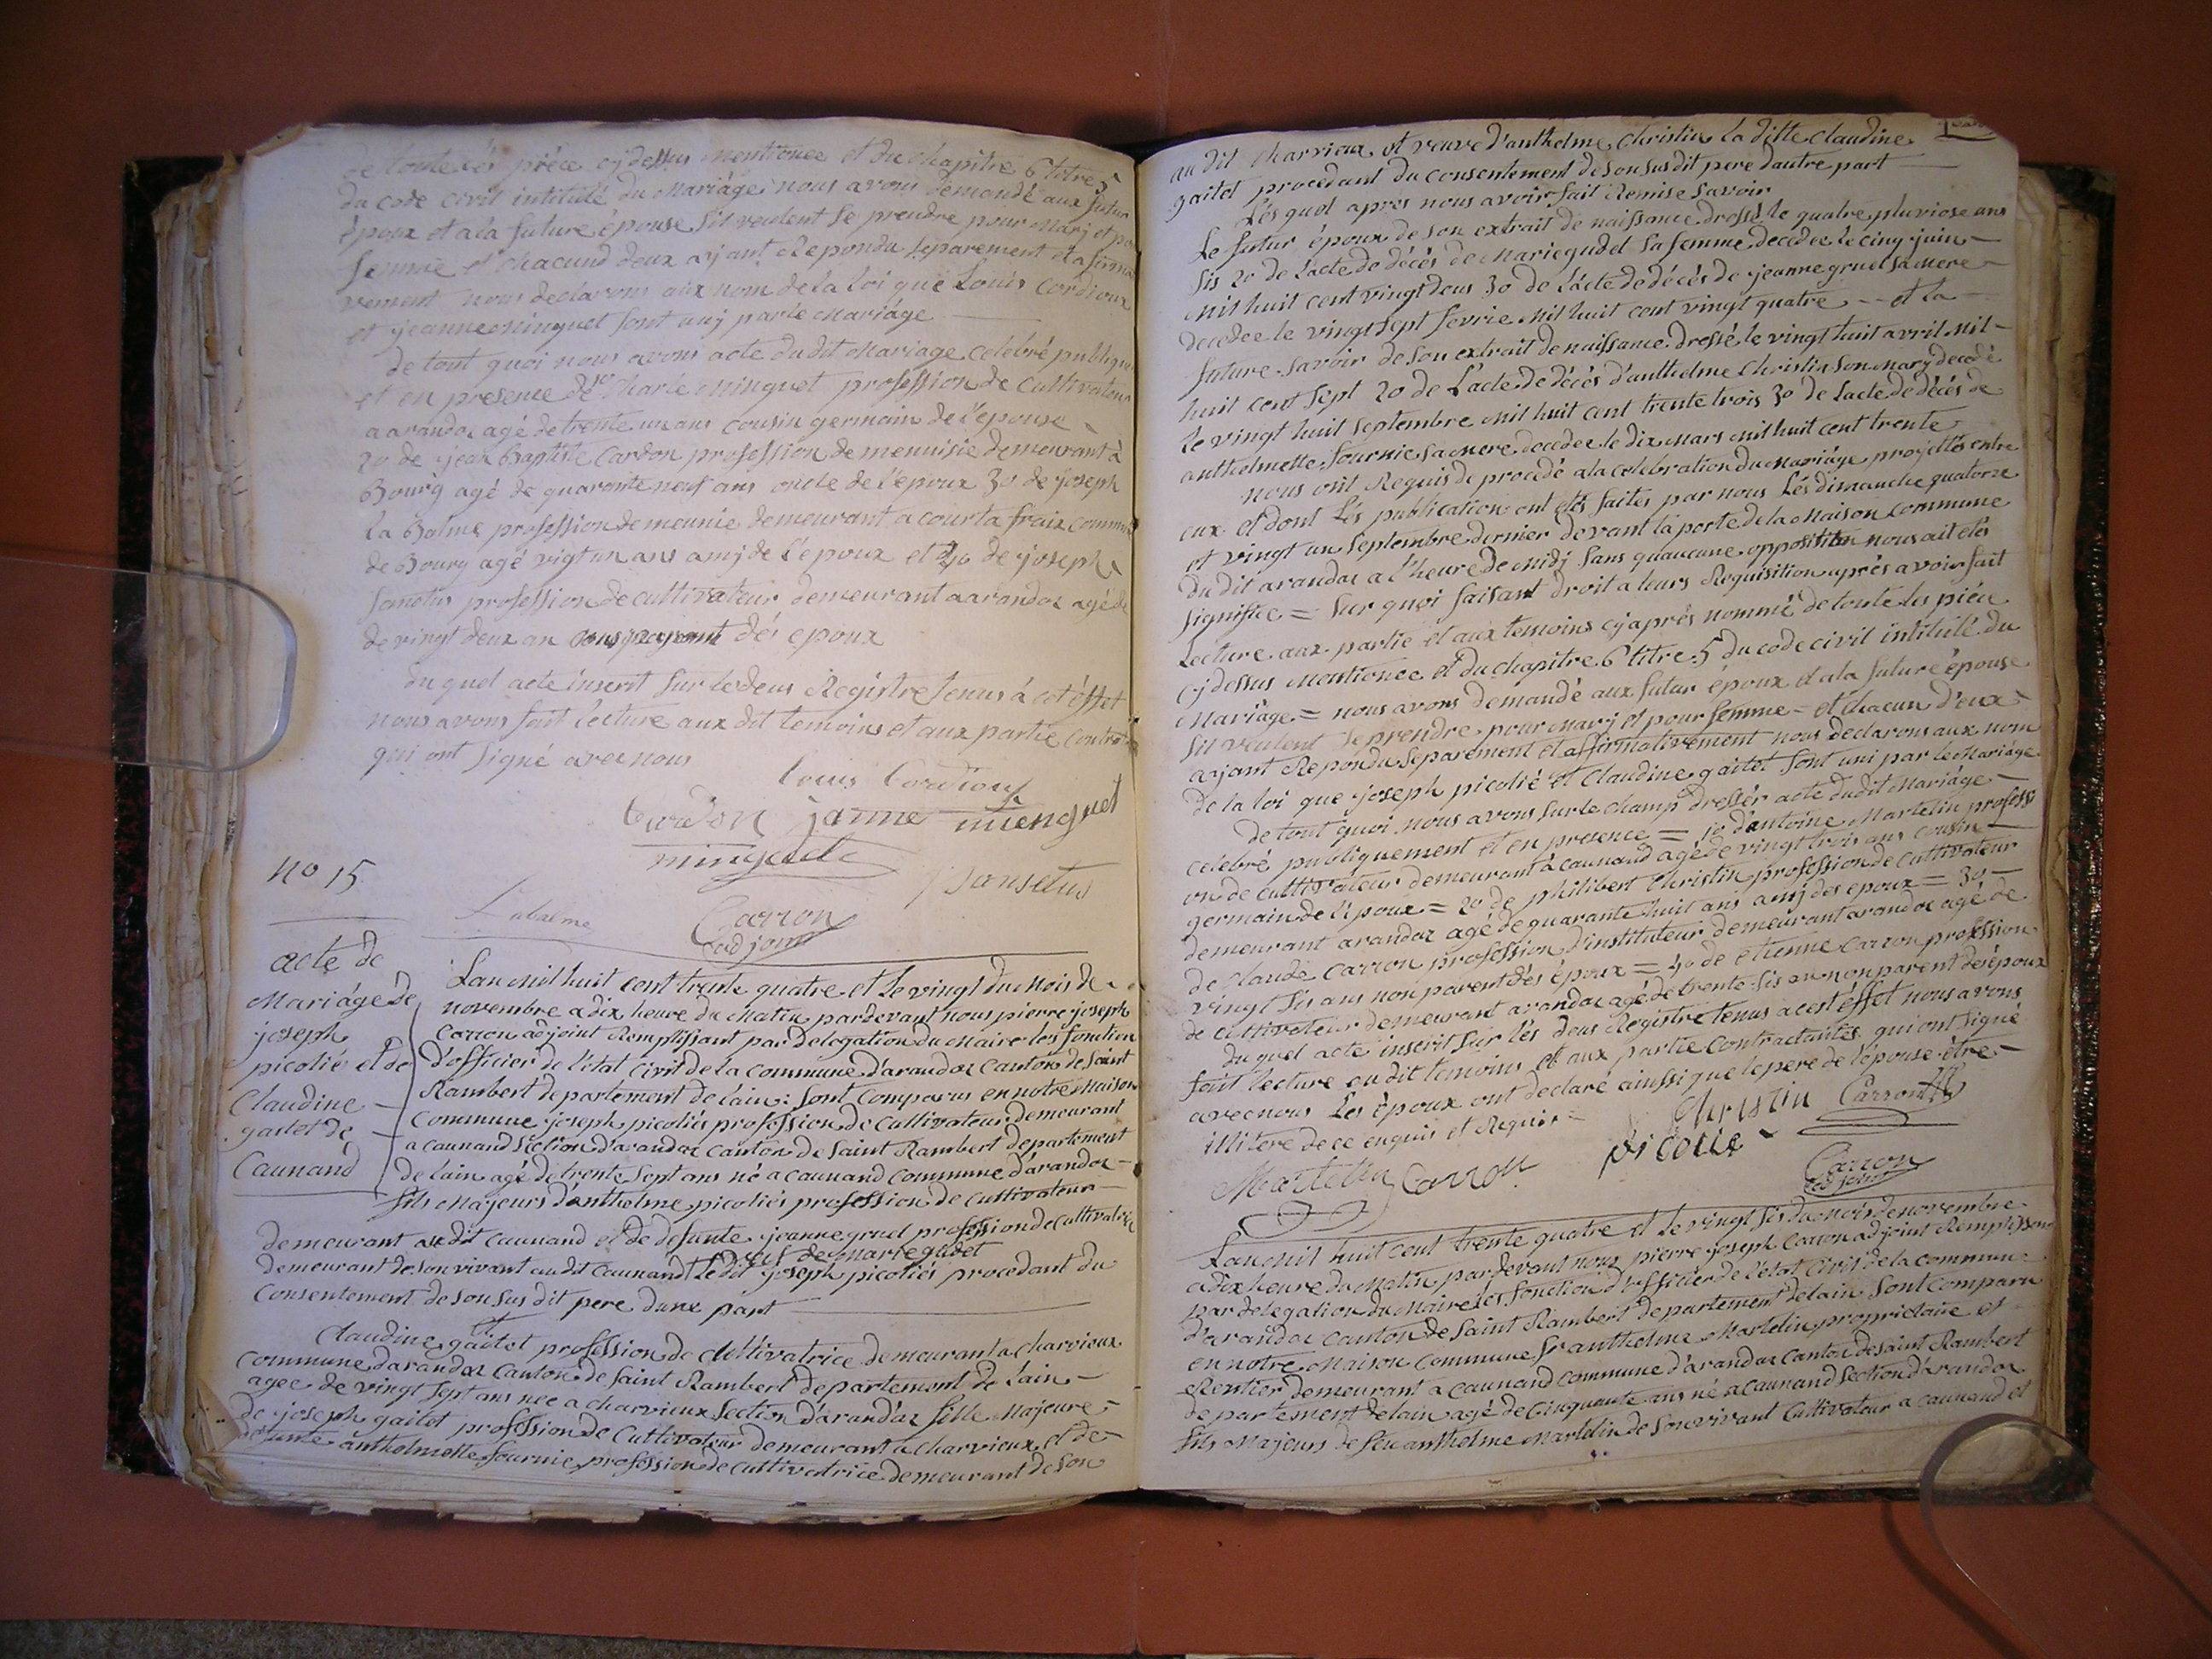 de toute lés pièce cy dessus mentionee et du chapitre 6 titre 5
du code civil intitulé du Mariáge nous avons demandé aux futur
époux et a la future épouse sil veulent se prendre pour Marj et pour
femme et chacund deux aÿant Repondu separement et afirma
vement nous declarons aux nom de la loi que Louis Cordioux
et jeanne Minguet sont unj par le Mariáge
de tout quoi nous avons acte du dit Mariage celebré publique
et en presence de 1o Charle Minguet profession de Cultivateur
a arandas agé de trente un ans cousin germain de l'epouse
2o de jean Baptiste Cardon profession de menuisié demeurant à
Bourg agé de quarante neuf ans oncle de l'epoux 3o de joseph
la Balme profession de meunié demeurant a courta frais commune
de Bourg agé vigt un ans amj de l'epoux et 4o de joseph
Sonetus profession de cultivateur demeurant a arandas agé de
de vingt deux an dés epoux
du quel acte inserit sur le deus Registre tenus à cet éffet
nous avons fait lecture aux dit temoins et aux partie Contrat
qui ont signé avec nous
louis Cordioux
Cardon janne mienguet
minguet
J Sansetus
Labalme Carron
adjoint
no 15
acte de
Mariáge de
joseph
picolié et de
Claudine
gaitet de
Caunand
Lan mil huit cent trente quatre et le vingt du Mois de
novembre a dix heure du Matin pardevant nous pierre joseph
Carron adjoint Remplissant par delegation du Maire les fonction
d'officier de l'état civil de la commune d'arandas Canton de saint
Rambert departement de lain: sont Comparus en notre Maison
Commune joseph picoliés profession de Cultivateur demeurant
a caunand section d'arandas canton de Saint Rambert departement
de lain agé de trente sept ans né a caunand commune d'arandas
fils Majeurs d'anthelme picoliés profession de cultivateur
demeurant audit caunand et de defunte jeanne gruel profession de Cultivatrice
veuf de Marie gudet
demeurant de son vivant au dit Caunand Le dit joseph picoliés procedant du
Consentement de son sus dit pere d'une part
et
Claudine gaitet profession de Cultivatrice demeurant a charvieux
Commune d'arandas Canton de Saint Rambert departement de lain
agee de vingt sept ans nee a charvieux section d'arandas fille Majeure
de joseph gaitet profession de Cultivateur demeurant a Charvieux et de
defunte anthelmette fournie profession de cultivatrice demeurant de son
au dit Charvieux et veuve d'anthelme Christin la ditte Claudine
gaitet procedant du consentement de son sus dit pere d'autre part
Lés quel apres nous avoir fait Remise savoir
Le futur époux de son extrait de naissance dressé le quatre pluviose ans
sis 2o de l'acte de décés de Marie gudet sa femme decedee le cinq juin
mil huit cent vingt deus 3o de L'acte de décés de jeanne gruel sa Mere
decedee le vingt sept fevrié mil huit cent vingt quatre et la
future savoir de son extrait de naissance dressé le vingt huit avril mil
huit cent sept 2o de L'acte de décés d'anthelme Christin son Mary decedé
le vingt huit septembre mil huit cent trente trois 3o de Lacte de décés de
anthelmette fournie sa mere decedee le dix Mars mil huit cent trente
nous ont Requis de procedé a la celebration du Mariáge projettés entre
eux et dont Lés publication ont étés faites par nous Lés dimanche quatorze
et vingt un septembre dernier devant la porte de la Maison Commune
du dit arandas a l'heure de midj sans quaucune opposition nous ait étés
signifiée = sur quoi faisant droit a leurs Requisition après avoir fait
Lecture aux partie et aux temoins cÿ aprés nommé de toute les piéce
cj dessus Mentionee et du chapitre 6 titre 5 du code civil intitulé du
Mariáge = nous avons demandé aux futur époux et a la future épouse
sil veulent se prendre pour Marj et pour femme = et chacun d'eux
aÿant Repondu separement et affirmativement nous declarons aux nom
de la loi que joseph picolié et Claudine gaitet sont uni par le Mariáge
de tout quoi nous avons sur le champ dressér acte du dit Mariáge
celebré publiquement et en presence = 1o d'antoine Martelin professi
on de cultivateur demeurant à caunand agé de vingt trois ans cousin
germain de l'époux = 2o de philibert Christin profession de Cultivateur
demeurant arandas agé de quarante huit ans amj des epoux = 3o
de Claude Carron profession d'instituteur demeurant arandas agé de
vingt sis ans non parent dés époux = 4o de etienne Carron profession
de cultivateur demeurant arandas agé de trente sis an non parent dés époux
du quel acte inserit sur lés deus Registre tenus a cest éffet nous avons
fait lecture au dit temoins et aux partie Contractantes qui ont signé
avec nous Les époux ont declaré ainssi que le pere de l'épouse être
illiteré de ce enquis et Requis
Christin Carron
picolié
Martelin Carron
Carron
adjoint
Lan mil huit cent trente quatre et le vingt sis du mois de novembre
a dix heure du Matin pardevant nous pierre joseph Carron adjoint Remplissant
par delegation du Maire les fonction d'officier de l'état Civil de la commune
d'arandas canton de Saint Rambert departement de lain Sont Comparu
en notre Maison Commune sr anthelme Martelin proprietaire et
Rentier demeurant a caunand commune d'arandas Canton de saint Rambert
departement de lain agé de cinquante ans né a Caunand section d'arandas
fils Majeurs de feu anthelme Martelin de son vivant Cultivateur a caunand et